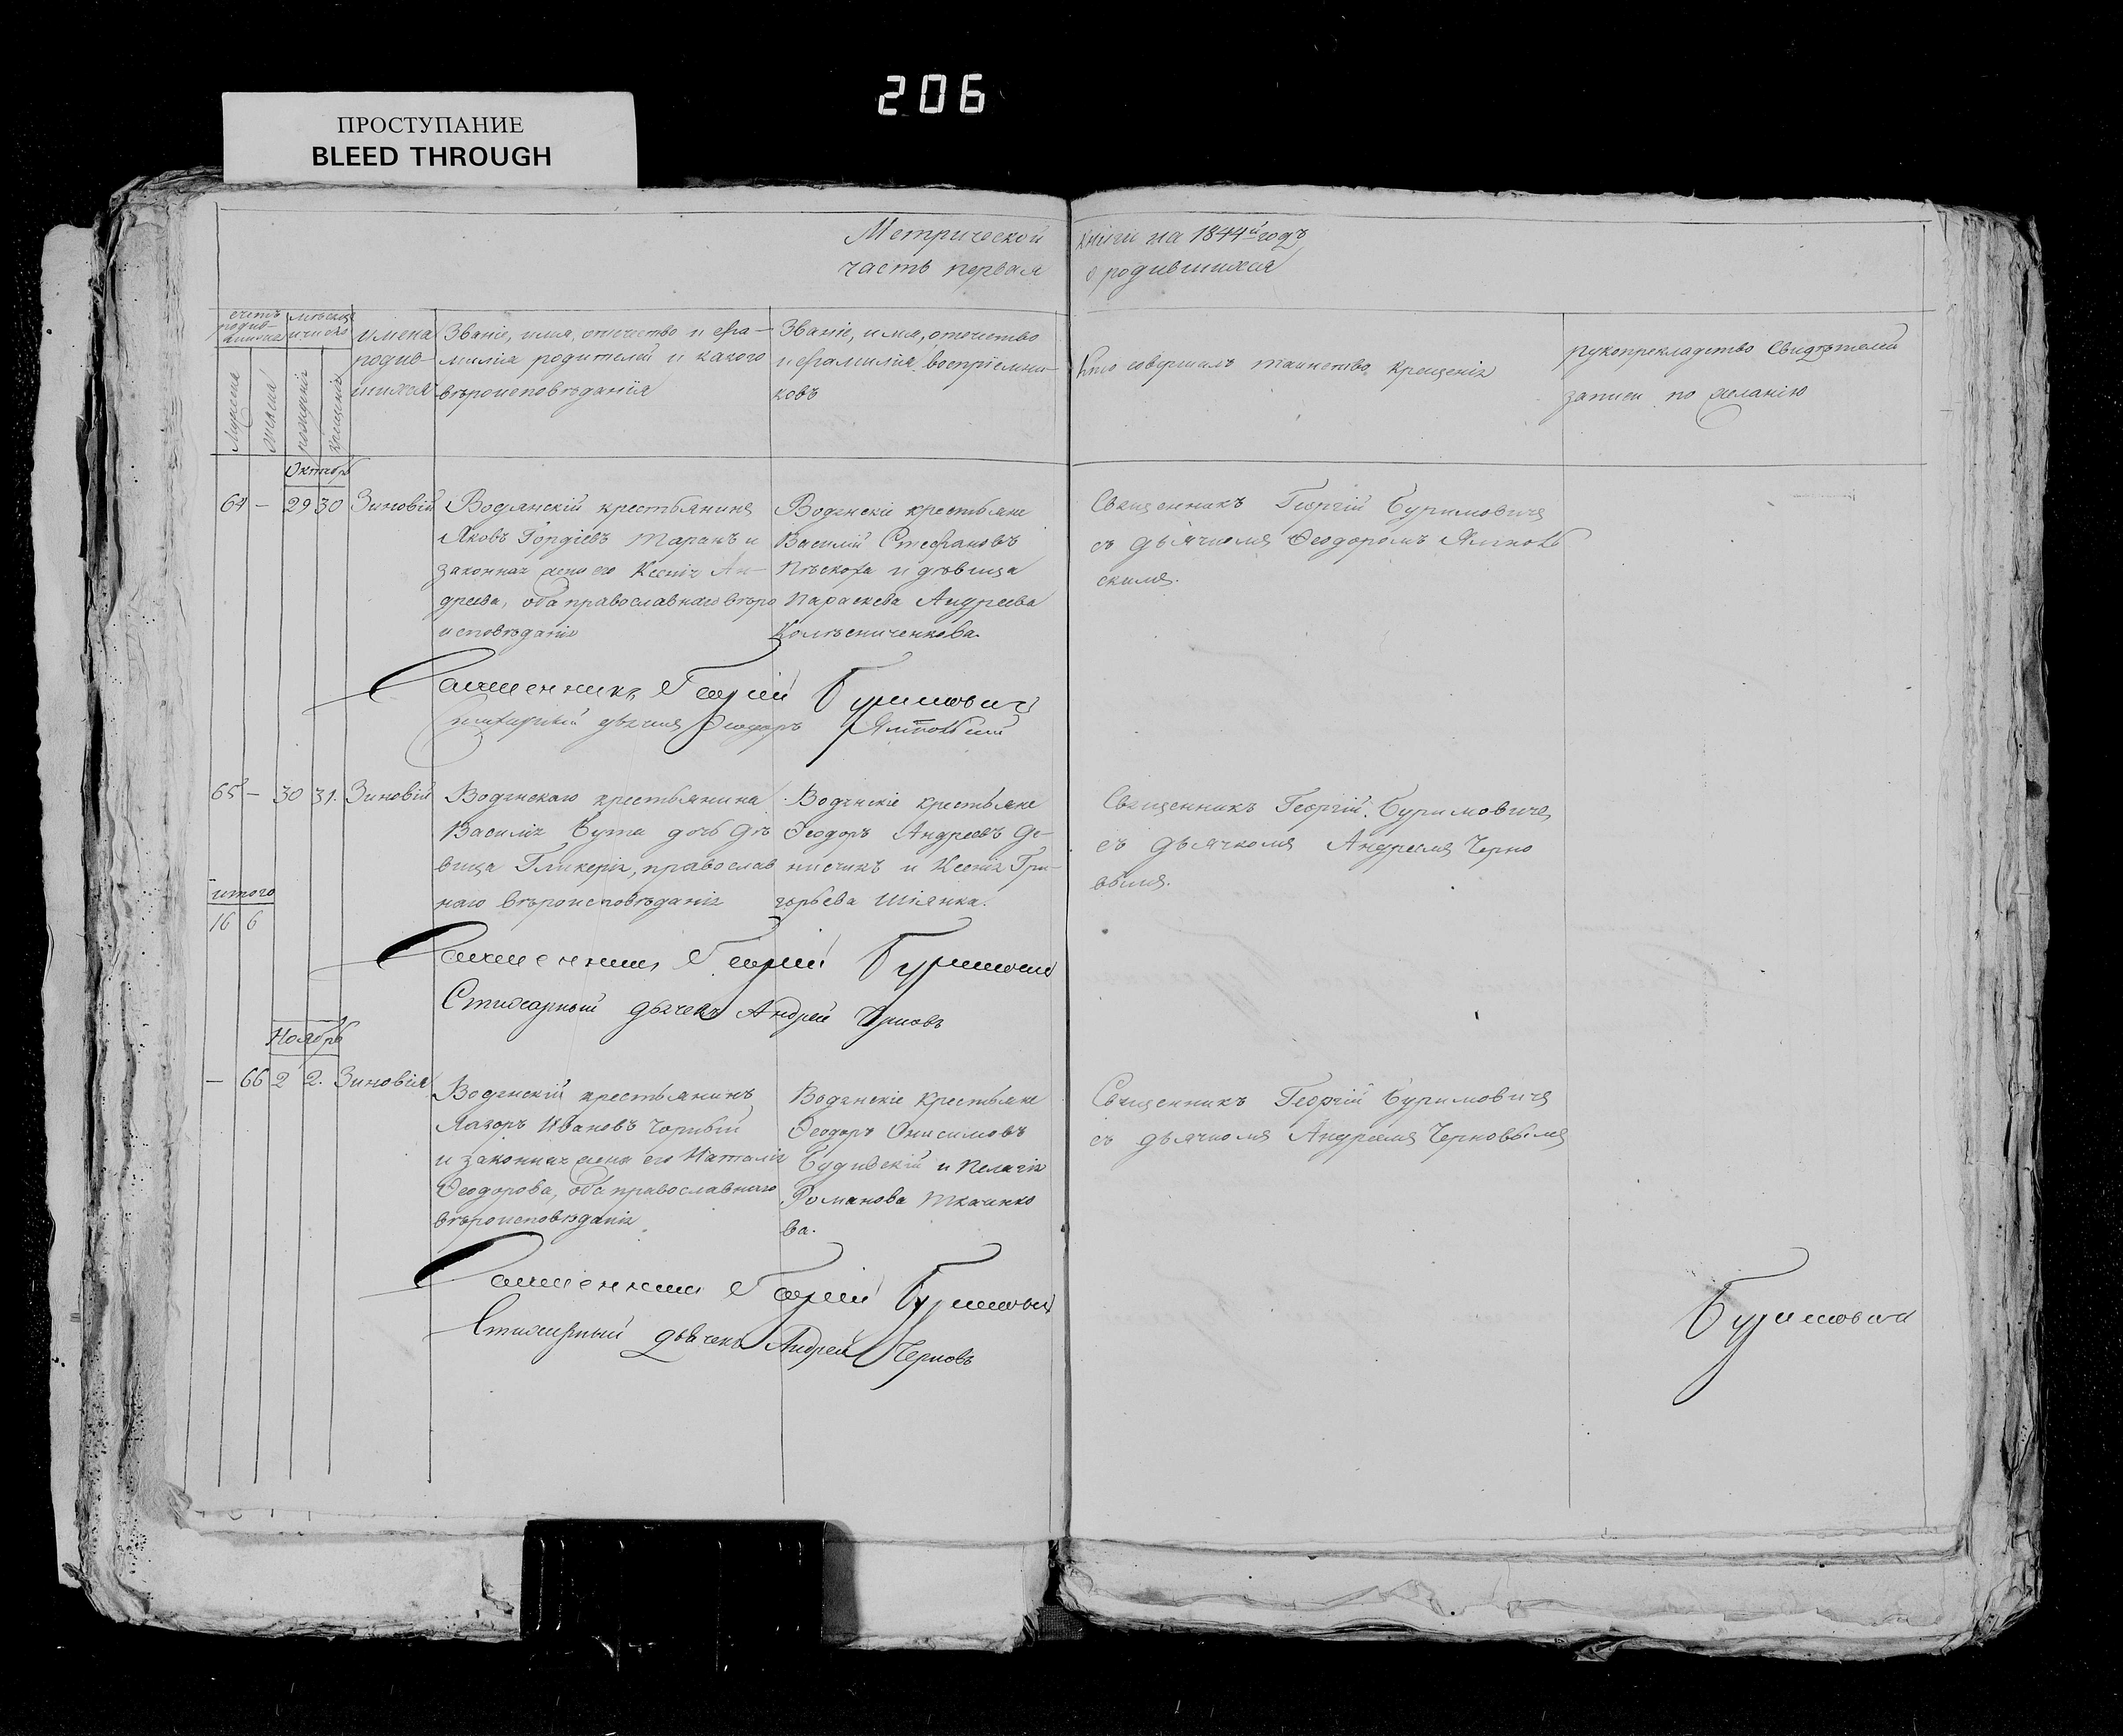 206
ПРОСТУПАНИЕ
BLEED THROUGH
Метрической книги на 1844й годъ
часть первая о родившихся
счетъ родив-шихся
мѣсяцъ и число
мужеска
женска
рожденія
крещенія
имена
родив-
шихся
Званіе, имя, отчество и фа-
милія родителей и какого
вѣроисповѣданія
Званіе, имя, отчество
и фамилія воспріемни-
ковъ
Кто совершалъ таинство крещенія
рукоприкладство свидѣтелей
записи по желанію
Октябрь
64 — 29 30 Зиновій
Водянскій крестьянинъ
Яковъ Гордіевъ Таранъ и
законная жена его Ксенія Ан-
дреева, оба православнаго вѣро
исповѣданія
Водянскіе крестьяне
Василій Стефановъ
Пѣскоха и дѣвица
Параскева Андреева
Колѣсниченкова.
Священникъ Георгій Буримовичъ
съ дьячкомъ Ѳеодоромъ
скимъ.
Священникъ Георгій Буримовичъ
Стихарный дьячекъ Ѳеодоръ
65 — 30 31. Зиновій
Водянскаго крестьянина
Василія Бута дочь дѣ
вица Гликерія, православ
наго вѣроисповѣданія
Водянскіе крестьяне
Ѳеодоръ Андреевъ Де-
нисчикъ и Ксенія Гри-
горьева Шіянка.
Священникъ Георгій Буримовичъ
съ дьячкомъ Андреемъ Черно
вымъ.
итого
16 6
Священникъ Георгій Буримовичъ
Стихарный дьячекъ Андрей Черновъ
Ноябрь
— 66 2 2. Зиновія
Водянскій крестьянинъ
Лазорь Ивановъ Чорный
и законная жена его Наталія
Ѳеодорова, оба православнаго
вѣроисповѣданія
Водянскіе крестьяне
Ѳеодоръ Онисимовъ
и Пелагія
Романова Ткаченко
ва.
Священникъ Георгій Буримовичъ
съ дьячкомъ Андреемъ Черновымъ
Священникъ Георгій Буримовичъ
Стихарный дьячекъ Андрей Черновъ
Буримовичъ